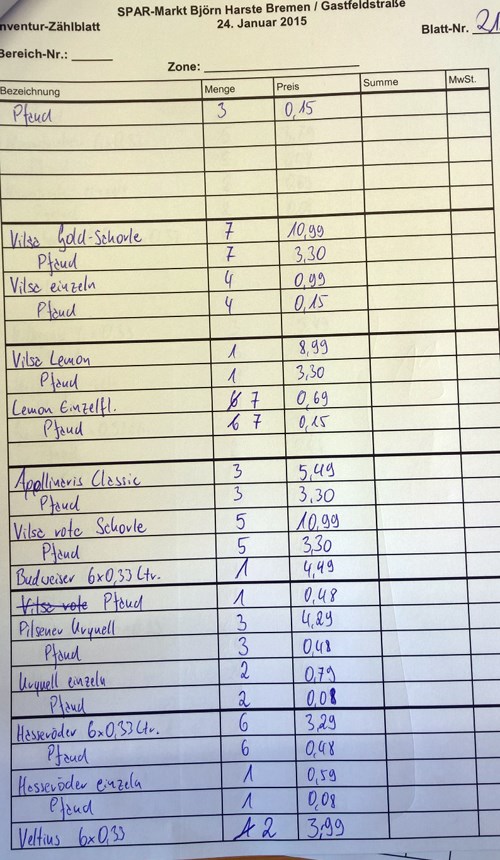 SPAR-Markt Björn Harste Bremen / Gastfeldstraße
nventur-Zählblatt 24. Januar 2015 Blatt-Nr. 21
Bereich-Nr.:
Zone:
Bezeichnung Menge Preis Summe MwSt.
Pfand 3 0,15
Vilsa Gold-Schorle 7 10,99
Pfand 7 3,30
Vilsa einzeln 4 0,99
Pfand 4 0,15
Vilsa Lemon 1 8,99
Pfand 1 3,30
Lemon Einzelfl. 6 7 0,69
Pfand 6 7 0,15
Apollinaris Classic 3 5,49
Pfand 3 3,30
Vilsa rote Schorle 5 10,99
Pfand 5 3,30
Budweiser 6x0,33 Ltr. 1 4,49
Vilsa rote Pfand 1 0,48
Pilsener Urquell 3 4,29
Pfand 3 0,48
Urquell einzeln 2 0,79
Pfand 2 0,08
Hasseröder 6x0,33 Ltr. 6 3,29
Pfand 6 0,48
Hasseröder einzeln 1 0,59
Pfand 1 0,08
Veltins 6x0,33 1 2 3,99